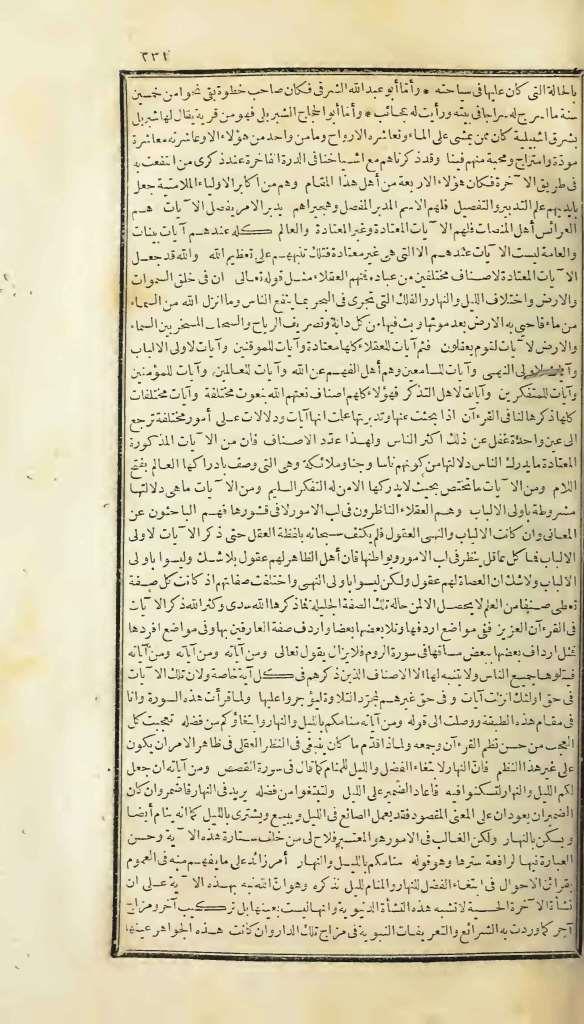 بالحالة التى كان عليها فى سياحته * وأما أبو عبد الله الشرفى فكان صاحب خطوة بقى نحوا من خمسين
سنة ما أسرج له سراجا فى بيته ورأيت له عجائب * وأما أبو الحجاج الشبربلى فهو من قرية يقال لها شبربل
بشرق اشبيلية كان ممن يمشى على الماء وتعاشره الارواح وما من واحد من هؤلاء الا وعاشرته معاشرة
مودة وامتزاج ومحبة منهم فينا وقد ذكرناهم مع أشياخنا فى الدرة الفاخرة عند ذكرى من انتفعت به
فى طريق الآخرة فكان هؤلاء الاربعة من أهل هذا المقام وهم من أكابر الاولياء الملامتية جعل
بأيديهم علم التدبير والتفصيل فلهم الاسم المدبر المفصل وهجيراهم يدبر الامر يفصل الآيات هم
العرائس أهل المنصات فلهم الآيات المعتادة وغير المعتادة والعالم كله عندهم آيات بينات
والعامة ليست الآيات عندهم الا التى هى غير معتادة فتلك تنبههم على تعظيم الله والله قد جعل
الآيات المعتادة لاصناف مختلفين من عباده فمنهم العقلاء مثل قوله تعالى ان فى خلق السموات
والارض واختلاف الليل والنهار والفلك التى تجرى فى البحر بما ينفع الناس وما أنزل الله من السماء
من ماء فأحيى به الارض بعد موتها وبث فيها من كل دابة وتصريف الرياح والسحاب المسخر بين السماء
والارض لآيات لقوم يعقلون فثم آيات للعقلاء كلها معتادة وآيات للموقنين وآيات لاولى الالباب
وآيات لاولى النهى وآيات للسامعين وهم أهل الفهم عن الله وآيات للعالمين وآيات للمؤمنين
وآيات للمتفكرين وآيات لاهل التذكر فهؤلاء كلهم أصناف نعتهم الله بنعوت مختلفة وآيات مختلفات
كلها ذكرها لنا فى القرءآن اذا بحثت عنها وتدبرتها علمت انها آيات ودلالات على أمور مختلفة ترجع
الى عين واحدة غفل عن ذلك أكثر الناس ولهذا عدد الاصناف فان من الآيات المذكورة
المعتادة ما يدرك الناس دلالتها من كونهم ناسا وجنا وملائكة وهى التى وصف بادراكها العالم بفتح
اللام ومن الآيات ما تختص بحيث لا يدركها الا من له التفكر السليم ومن الآيات ما هى دلالتها
مشروطة بأولى الالباب وهم العقلاء الناظرون فى لب الامور لا فى قشورها فهم الباحثون عن
المعانى وان كانت الالباب والنهى العقول فلم يكتف سبحانه بلفظة العقل حتى ذكر الآيات لاولى
الالباب فما كل عاقل ينظر فى لب الامور وبواطنها فان أهل الظاهر لهم عقول بلا شك وليسوا بأولى
الالباب ولا شك ان العصاة لهم عقول ولكن ليسوا بأولى النهى واختلفت صفاتهم اذ كانت كل صفة
تعطى صنفا من العلم لا يحصل الا لمن حاله تلك الصفة الجليلة فما ذكرها الله سدى وكثر الله ذكر الآيات
فى القرءآن العزيز ففى مواضع أردفها وتلا بعضها بعضا وأردف صفة العارفين بها وفى مواضع أفردها
مثل ارداف بعضها ببعض مساقها فى سورة الروم فلا يزال يقول تعالى ومن آياته ومن آياته ومن آياته
فيتلوها جميع الناس ولا يتنبه لها الا الاصناف الذين ذكرهم فى كل آية خاصة وكأن تلك الآيات
فى حق أولئك أنزلت آيات وفى حق غيرهم لمجرد التلاوة ليؤجروا عليها ولما قرأت هذه السورة وأنا
فى مقام هذه الطبقة ووصلت الى قوله ومن آياته منامكم بالليل والنهار وابتغاؤكم من فضله تعجبت كل
العجب من حسن نظم القرءآن وجمعه ولماذا قدم ما كان ينبغى فى النظر العقلى فى ظاهر الامر أن يكون
على غير هذا النظم فان النهار لابتغاء الفضل والليل للمنام كما قال فى سورة القصص ومن آياته أن جعل
لكم الليل والنهار لتسكنوا فيه فأعاد الضمير على الليل ولتبتغوا من فضله يريد فى النهار فأضمر وان كان
الضميران يعودان على المعنى المقصود فقد يعمل الصانع فى الليل ويبيع ويشترى بالليل كما انه ينام أيضا
ويسكن بالنهار ولكن الغالب فى الامور هو المعتبر فلاح لى من خلف ستارة هذه الآية وحسن
العبارة عنها الرافعة سترها وهو قوله منامكم بالليل والنهار أمر زائد على ما يفهم منه فى العموم
بقرائن الاحوال فى ابتغاء الفضل للنهار والمنام لليل نذكره وهو ان الله نبه بهذه الآية على ان
نشأة الآخرة الحسية لا تشبه هذه النشأة الدنيوية وانها ليست بعينها بل تركيب آخر ومزاج
آخر كما وردت به الشرائع والتعريفات النبوية فى مزاج تلك الدار وان كانت هذه الجواهر عينها